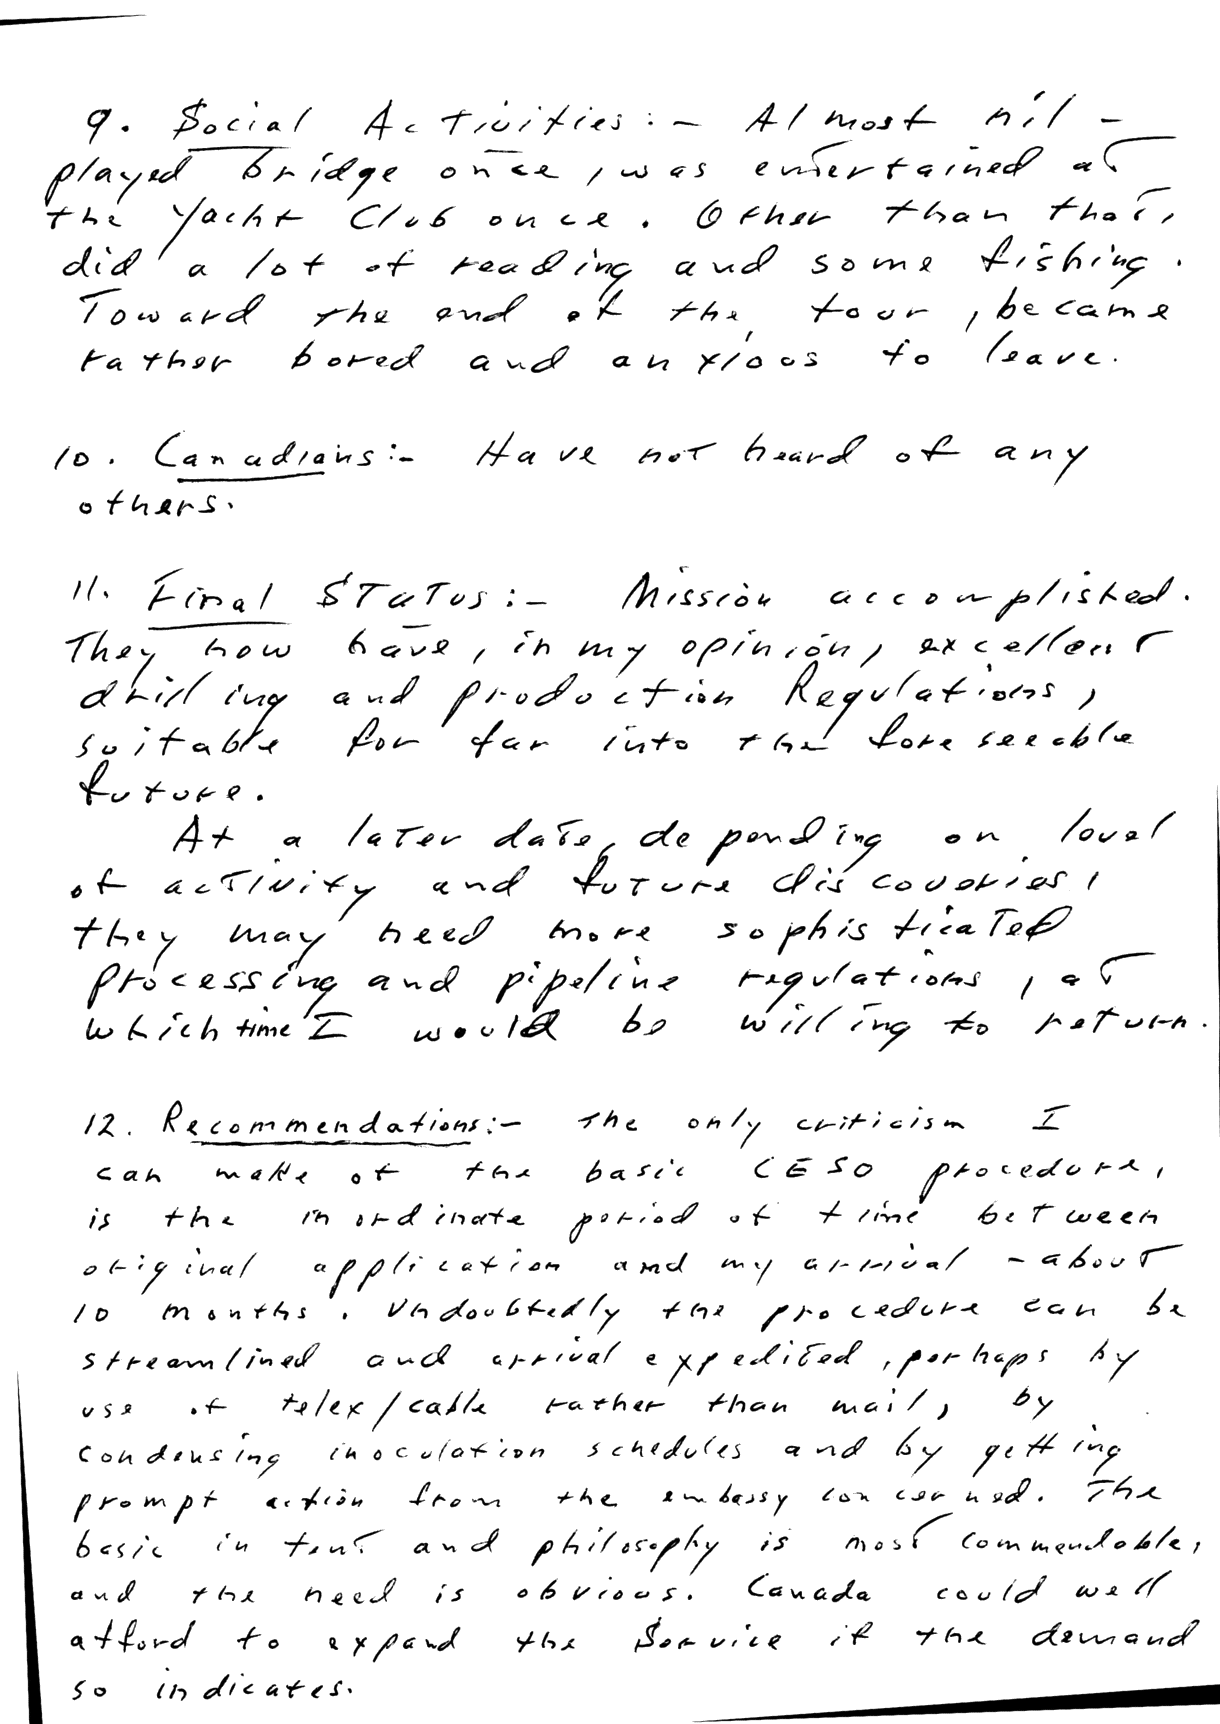 9. Social Activities:- Almost nil -
played bridge once, was entertained at
the Yacht Club once. Other than that,
did a lot of reading and some fishing.
Toward the end of the tour, became
rather bored and anxious to leave.
10. Canadians:- Have not heard of any
others.
11. Final Status:- Mission accomplished.
They now have, in my opinion, excellent
drilling and production Regulations,
suitable for far into the foreseeable
future.
At a later date, depending on level
of activity and future discoveries,
they may need more sophisticated
processing and pipeline regulations, at
which time I would be willing to return.
12. Recommendations:- The only criticism I
can make of the basic CESO procedure,
is the inordinate period of time between
original application and my arrival - about
10 months. Undoubtedly the procedure can be
streamlined and arrival expedited, perhaps by
use of telex/cable rather than mail, by
condensing inoculation schedules and by getting
prompt action from the embassy concerned. The
basic intent and philosophy is most commendable,
and the need is obvious. Canada could well
afford to expand the Service if the demand
so indicates.